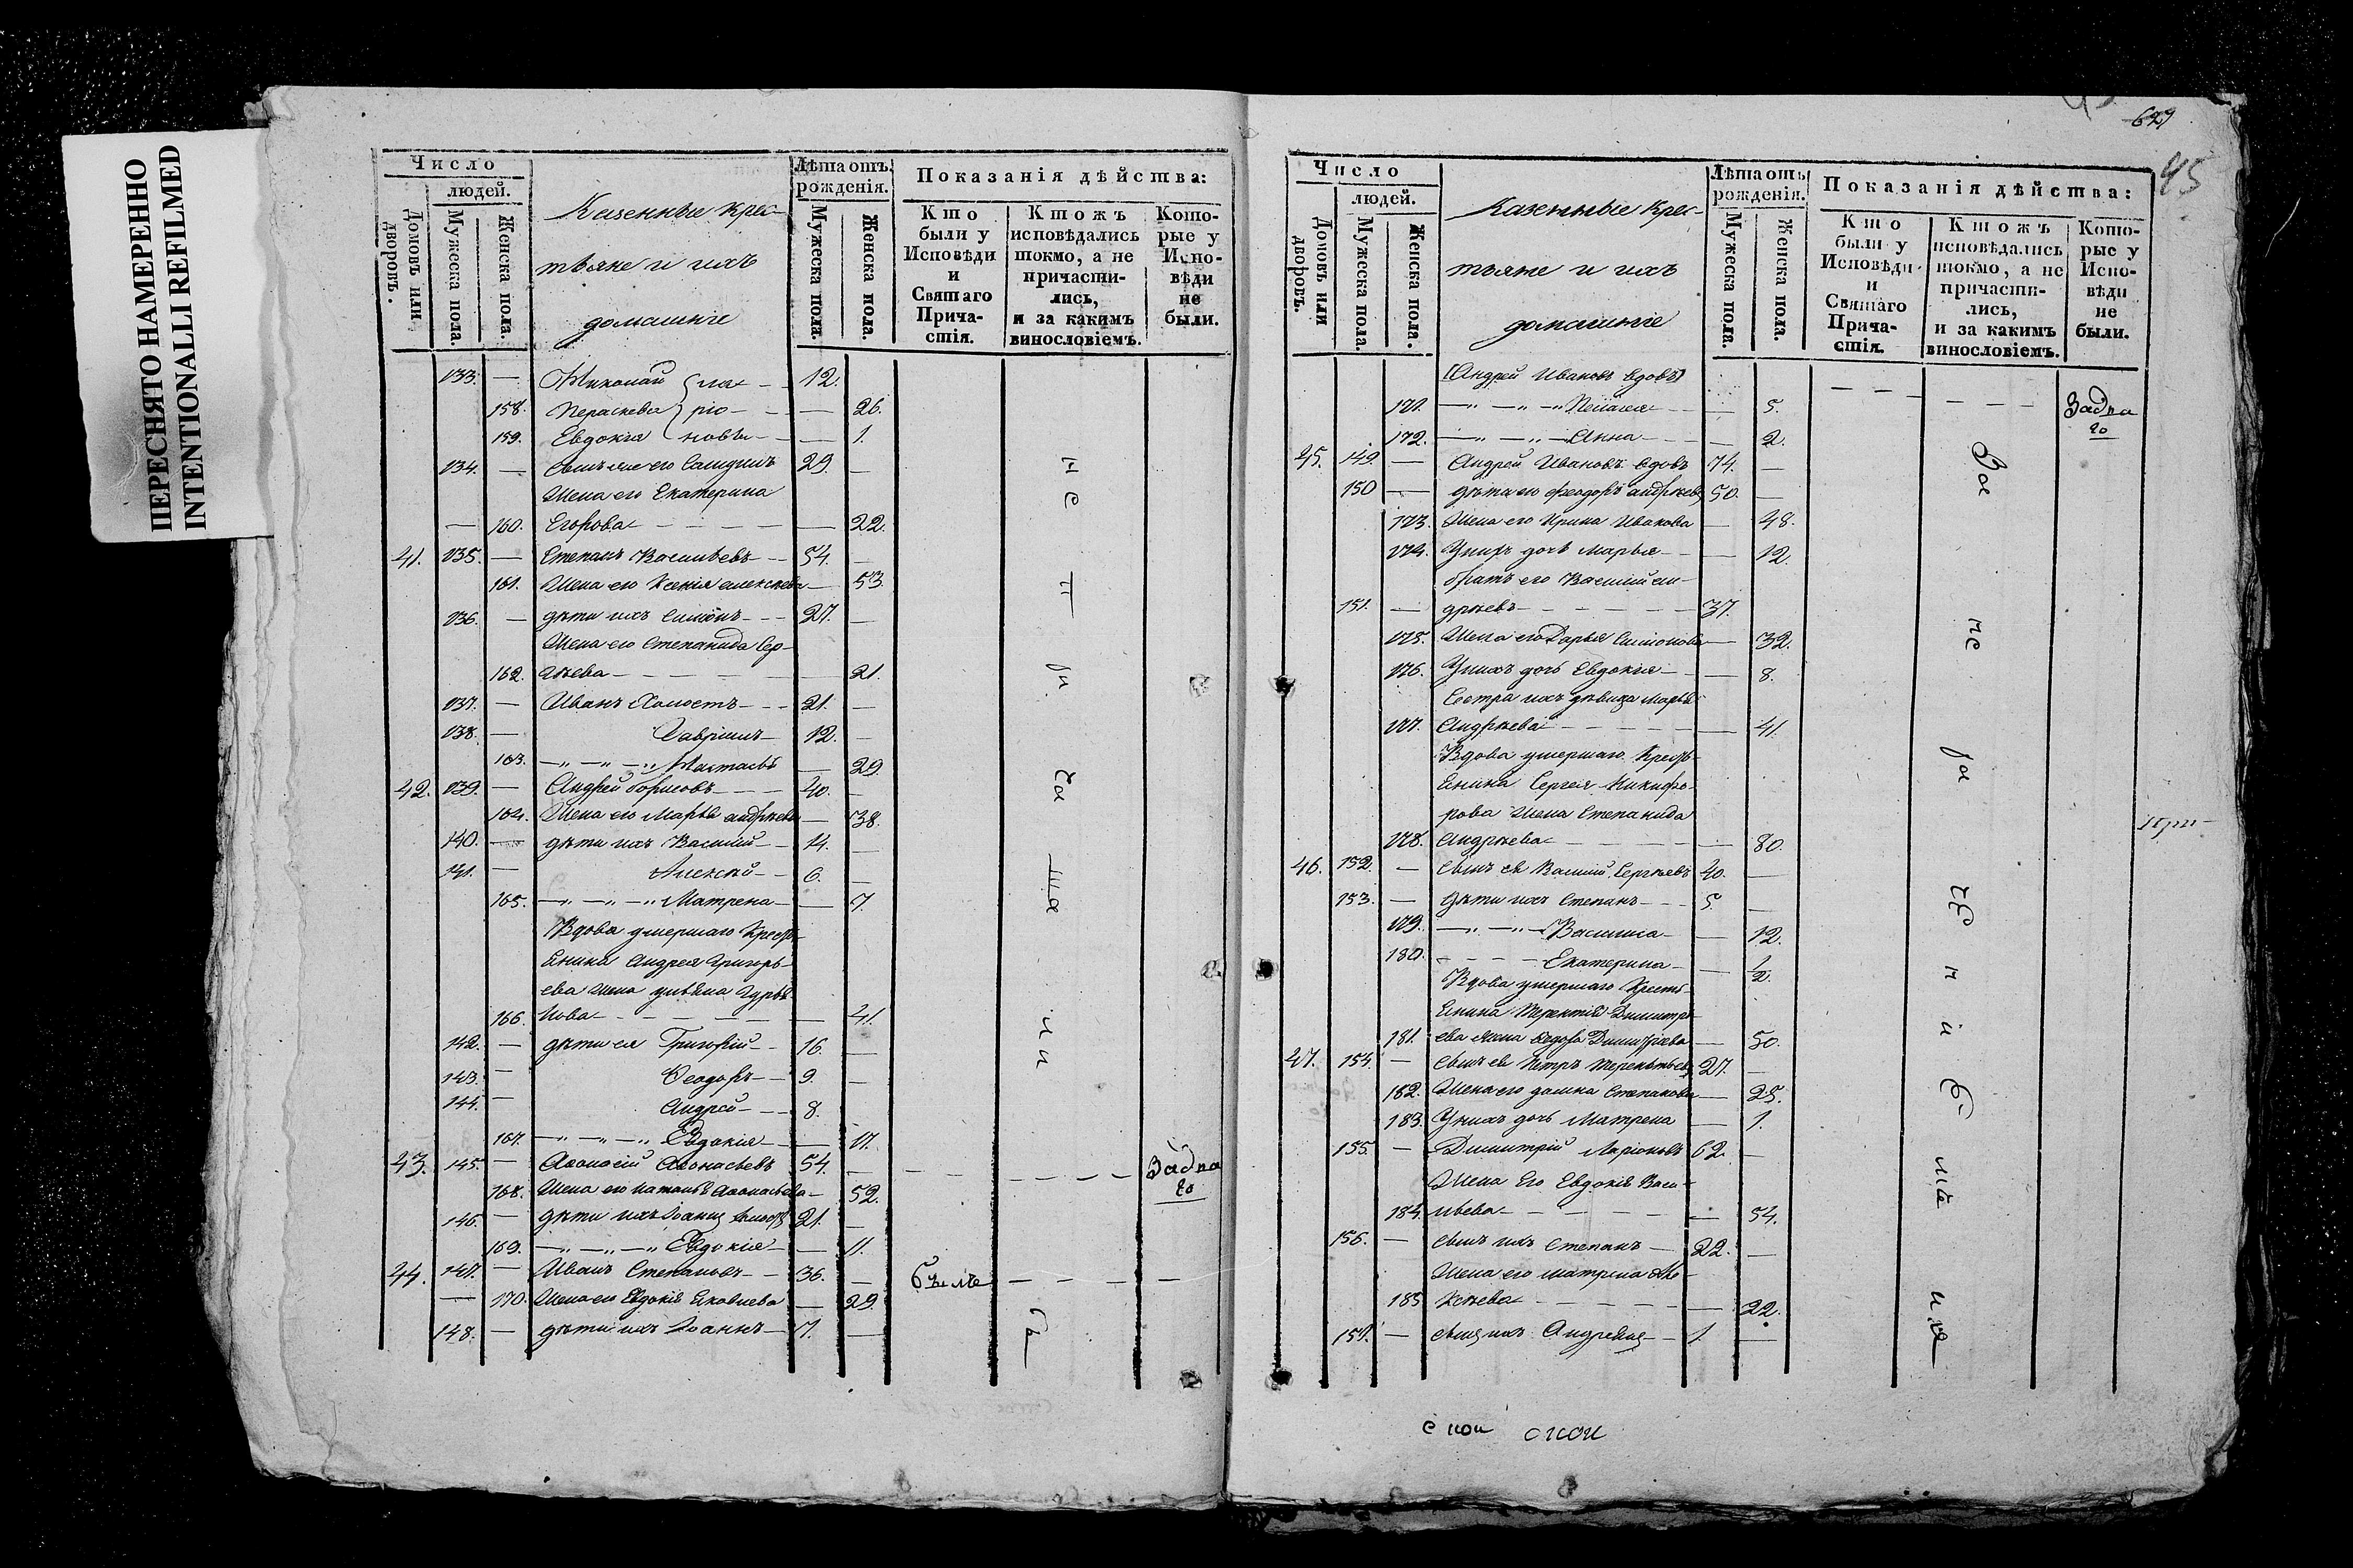 ПЕРЕСНЯТО НАМЕРЕННО
INTENTIONALLI REFILMED
Число
людей.
Домовъ или дворовъ.
Мужеска пола.
Женска пола.
Казенные крес-
тьяне и ихъ
домашніе
Лѣта отъ рожденія.
Мужеска пола.
Женска пола.
Показанія дѣйства:
Кто были у Исповѣди и Святаго Прича-стія.
Ктожъ исповѣдались токмо, а не причасти-лись, и за какимъ винословіемъ.
Кото-рые у Испо-вѣди не были.
133. — Николай 12.
158. Параскева — 26.
159. Евдокія — 1.
134. — 29. —
Жена его Екатерина
— 160. Егорова — 22.
41. 135. — Степанъ Васильевъ 54. —
161. Жена его Ксенія Алексѣева — 53
136. — дѣти ихъ Симіонъ 27. —
Жена его Степанида Сер-
162. гѣева — 21.
137. — Иванъ Холостъ 21. —
138. — Гавріилъ 12. —
163. —„—„—„ Настасья — 29.
42. 139. — Андрей Борисовъ 40. —
164. Жена его Марья Андрѣева — 38.
140. — дѣти ихъ Василій 14. —
141. — Алексѣй 6. —
165. —„—„—„ Матрена — 7.
Вдова умершаго Кресть-
янина Андрея Григорь-
ева жена
166. — 41.
142. — дѣти ея Григорій 16. —
143. — Ѳеодоръ 9. —
144. — Андрей 8.
167. —„—„—„ Евдокія — 17.
43. 145. — Аѳонасій Аѳонасьевъ 54. —
168. Жена его Наталья Аѳонасьева — 52.
146. — дѣти ихъ 21. —
169. —„—„—„ Евдокія — 11.
44. 147. — Иванъ Степановъ 36. — былъ
— 170. Жена его Евдокія Яковлева — 29.
148. — дѣти ихъ Іоаннъ 7. —
629
45
Число
людей.
Домовъ или дворовъ.
Мужеска пола.
Женска пола.
Казенные крес-
тьяне и ихъ
домашніе
Лѣта отъ рожденія.
Мужеска пола.
Женска пола.
Показанія дѣйства:
Кто были у Исповѣди и Святаго Прича-стія.
Ктожъ исповѣдались токмо, а не причасти-лись, и за какимъ винословіемъ.
Кото-рые у Испо-вѣди не были.
[Андрей Ивановъ вдовъ]
171. —„—„—„ Пелагея — 5.
172. —„—„— Анна — 2.
45. 149. — Андрей Ивановъ вдовъ 74. —
150 — дѣти его Ѳеодоръ Андрѣевъ 50. —
173. Жена его Ирина Иванова — 48.
174. У нихъ дочь Марья — 12.
братъ его Василій Ан-
151. — дрѣевъ 37.
175. Жена его Дарья Симіонова — 32.
176. У нихъ дочь Евдокія — 8.
Сестра ихъ дѣвица Марья
177. Андрѣева — 41.
Вдова умершаго Кресть-
янина Сергея Никифо-
рова жена Степанида
178. Андрѣева — 80.
46. 152. — сынъ ея Василій Сергѣевъ 40. —
153. — Дѣти ихъ Степанъ 5. —
179. —„—„— Василиса — 12.
180. Екатерина — 1/2.
Вдова умершаго Кресть-
янина Терентія Димитрі-
181. ева жена Ѳедора Димитріева — 50.
47. 154. — сынъ ея Петръ Терентьевъ 27. —
182. Жена его Домна Степанова — 25.
183. У нихъ дочь Матрена — 1.
155. — Димитрій Ларіоновъ 62. —
Жена Его Евдокія Васи-
184. льева — 54.
156. — сынъ ихъ Степанъ 22. —
Жена его Матрена Але-
185 ксѣева — 22.
157. — сынъ ихъ Андрей 1. —